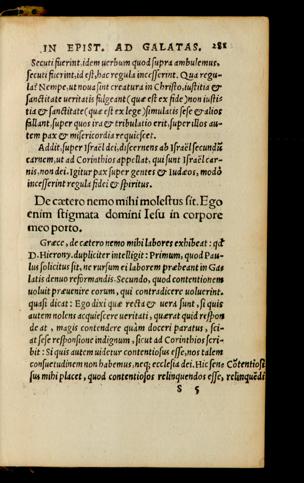 IN EPIST. AD GALATAS. 281
Secuti fuerint. idem uerbum quod supra ambulemus.
secuti fuerint, id est, hac regula incesserint. Qua regu-
la? Nempe, ut noua sint creatura in Christo, iustitia &
sanctitate ueritatis fulgeant (quæ est ex fide) non iusti-
tia & sanctitate (quæ est ex lege) simulatis sese & alios
fallant. super quos ira & tribulatio erit. super illos au-
tem pax & misericordia requiescet.
Addit. super Israël dei, discernens ab Israël secundũ
carnem, ut ad Corinthios appellat, qui sunt Israël car-
nis, non dei. Igitur pax super gentes & Iudæos, modò
incesserint regula fidei & spiritus.
De cætero nemo mihi molestus sit. Ego
enim stigmata domini Iesu in corpore
meo porto.
Græce, de cætero nemo mihi labores exhibeat: qđ
D. Hierony. dupliciter intelligit: Primum, quod Pau-
lus solicitus sit, ne rursum ei laborem præbeant in Ga-
latis denuo reformandis. Secundo, quod contentionem
uoluit præuenire eorum, qui contradicere uoluerint.
quasi dicat: Ego dixi quæ recta & uera sunt, si quis
autem nolens acquiescere ueritati, quærat quid respon
deat, magis contendere quàm doceri paratus, sci-
at sese responsione indignum, sicut ad Corinthios scri-
bit: Si quis autem uidetur contentiosus esse, nos talem
consuetudinem non habemus, neq; ecclesia dei. Hic sene Cõtentiosi
sus mihi placet, quod contentiosos relinquendos esse, relinquẽdi
S 5